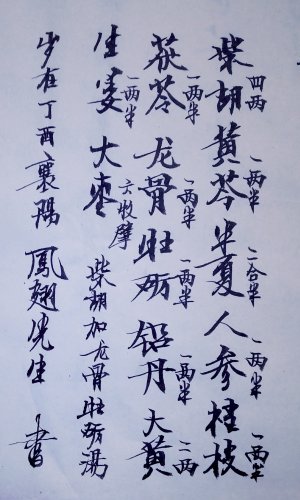 柴胡四两黄芩一两半半夏二合半人参一两半桂枝一两半
茯苓一两半龙骨一两半牡砺一两半铅丹一两半大黄二两
生姜一两半大枣六枚擘柴胡加龙骨牡砺汤
岁在丁酉襄阳凤翅先生书